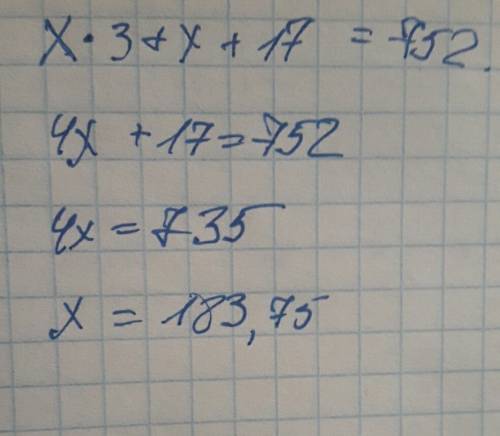 X · 3 + x + 17 = 752.
4x + 17 = 752
4x = 735
x = 183,75